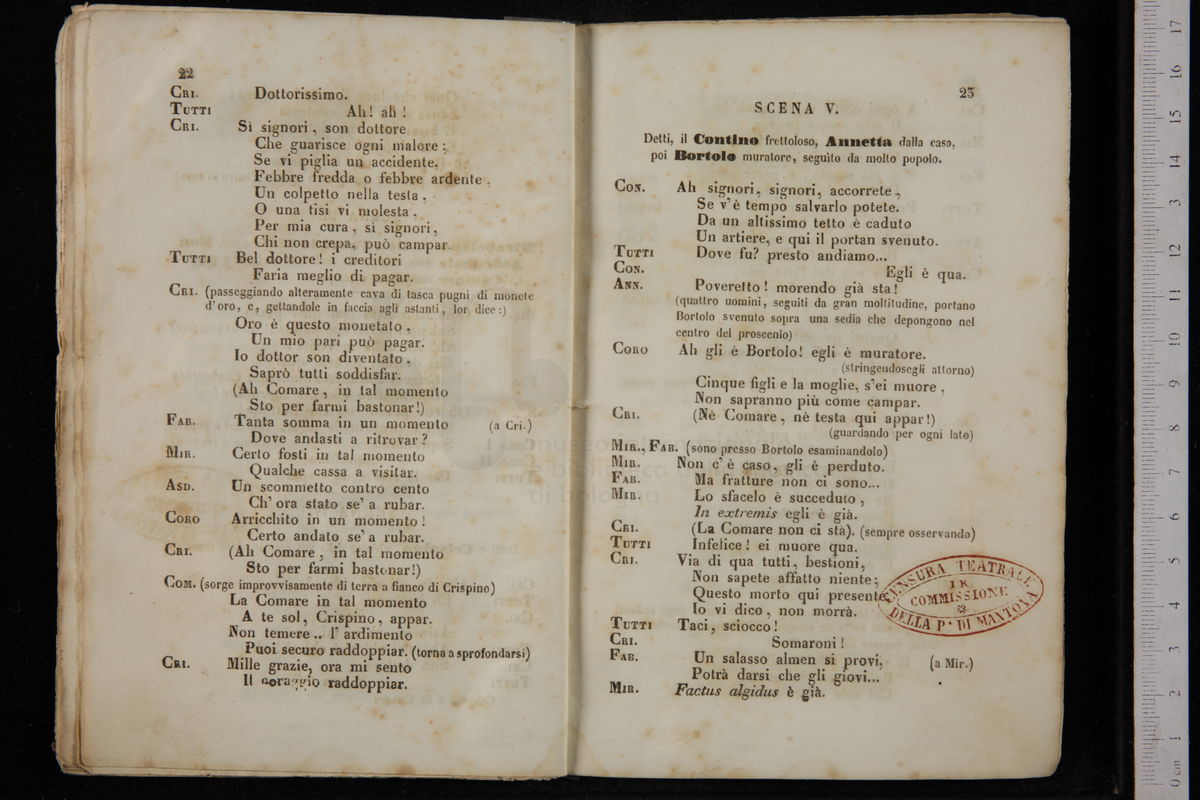 22
CRI. Dottorissimo.
TUTTI Ah! ah!
CRI. Sì signori, son dottore
Che guarisce ogni malore;
Se vi piglia un accidente,
Febbre fredda o febbre ardente,
Un colpetto nella testa,
O una tisi vi molesta,
Per mia cura, sì signori,
Chi non crepa, può campar.
TUTTI Bel dottore! i creditori
Faria meglio di pagar.
CRI. (passeggiando alteramente cava di tasca pugni di monete
d'oro, e, gettandole in faccia agli astanti, lor dice:)
Oro è questo monetato,
Un mio pari può pagar.
Io dottor son diventato,
Saprò tutti soddisfar.
(Ah Comare, in tal momento
Sto per farmi bastonar!)
FAB. Tanta somma in un momento (a Cri.)
Dove andasti a ritrovar?
MIR. Certo fosti in tal momento
Qualche cassa a visitar.
ASD. Un scommetto contro cento
Ch' ora stato se' a rubar.
CORO Arricchito in un momento!
Certo andato se' a rubar.
CRI. (Ah Comare, in tal momento
Sto per farmi bastonar!)
COM. (sorge improvvisamente di terra a fianco di Crispino)
La Comare in tal momento
A te sol, Crispino, appar.
Non temere.. l' ardimento
Puoi securo raddoppiar. (torna a sprofondarsi)
CRI. Mille grazie, ora mi sento
Il coraggio raddoppiar.
23
SCENA V.
Detti, il Contino frettoloso, Annetta dalla casa,
poi Bortolo muratore, seguito da molto popolo.
CON. Ah signori, signori, accorrete,
Se v'è tempo salvarlo potete.
Da un altissimo tetto è caduto
Un artiere, e qui il portan svenuto.
TUTTI Dove fu? presto andiamo...
CON. Egli è qua.
ANN. Poveretto! morendo già sta!
(quattro uomini, seguiti da gran moltitudine, portano
Bortolo svenuto sopra una sedia che depongono nel
centro del proscenio)
CORO Ah gli è Bortolo! egli è muratore.
(stringendosegli attorno)
Cinque figli e la moglie, s'ei muore,
Non sapranno più come campar.
CRI. (Nè Comare, nè testa qui appar!)
(guardando per ogni lato)
MIR., FAB. (sono presso Bortolo esaminandolo)
MIR. Non c' è caso, gli è perduto.
FAB. Ma fratture non ci sono...
MIR. Lo sfacelo è succeduto,
In extremis egli è già.
CRI. (La Comare non ci stà). (sempre osservando)
TUTTI Infelice! ei muore qua.
CRI. Via di qua tutti, bestioni,
Non sapete affatto niente;
Questo morto qui presente
Io vi dico, non morrà.
TUTTI Taci, sciocco!
CRI. Somaroni!
FAB. Un salasso almen si provi, (a Mir.)
Potrà darsi che gli giovi...
MIR. Factus algidus è già.
CENSURA TEATRALE
I R
COMMISSIONE
DELLA P.ª DI MANTOVA
museo
biblioteca
di bologna
0 cm 1 2 3 4 5 6 7 8 9 10 11 12 13 14 15 16 17